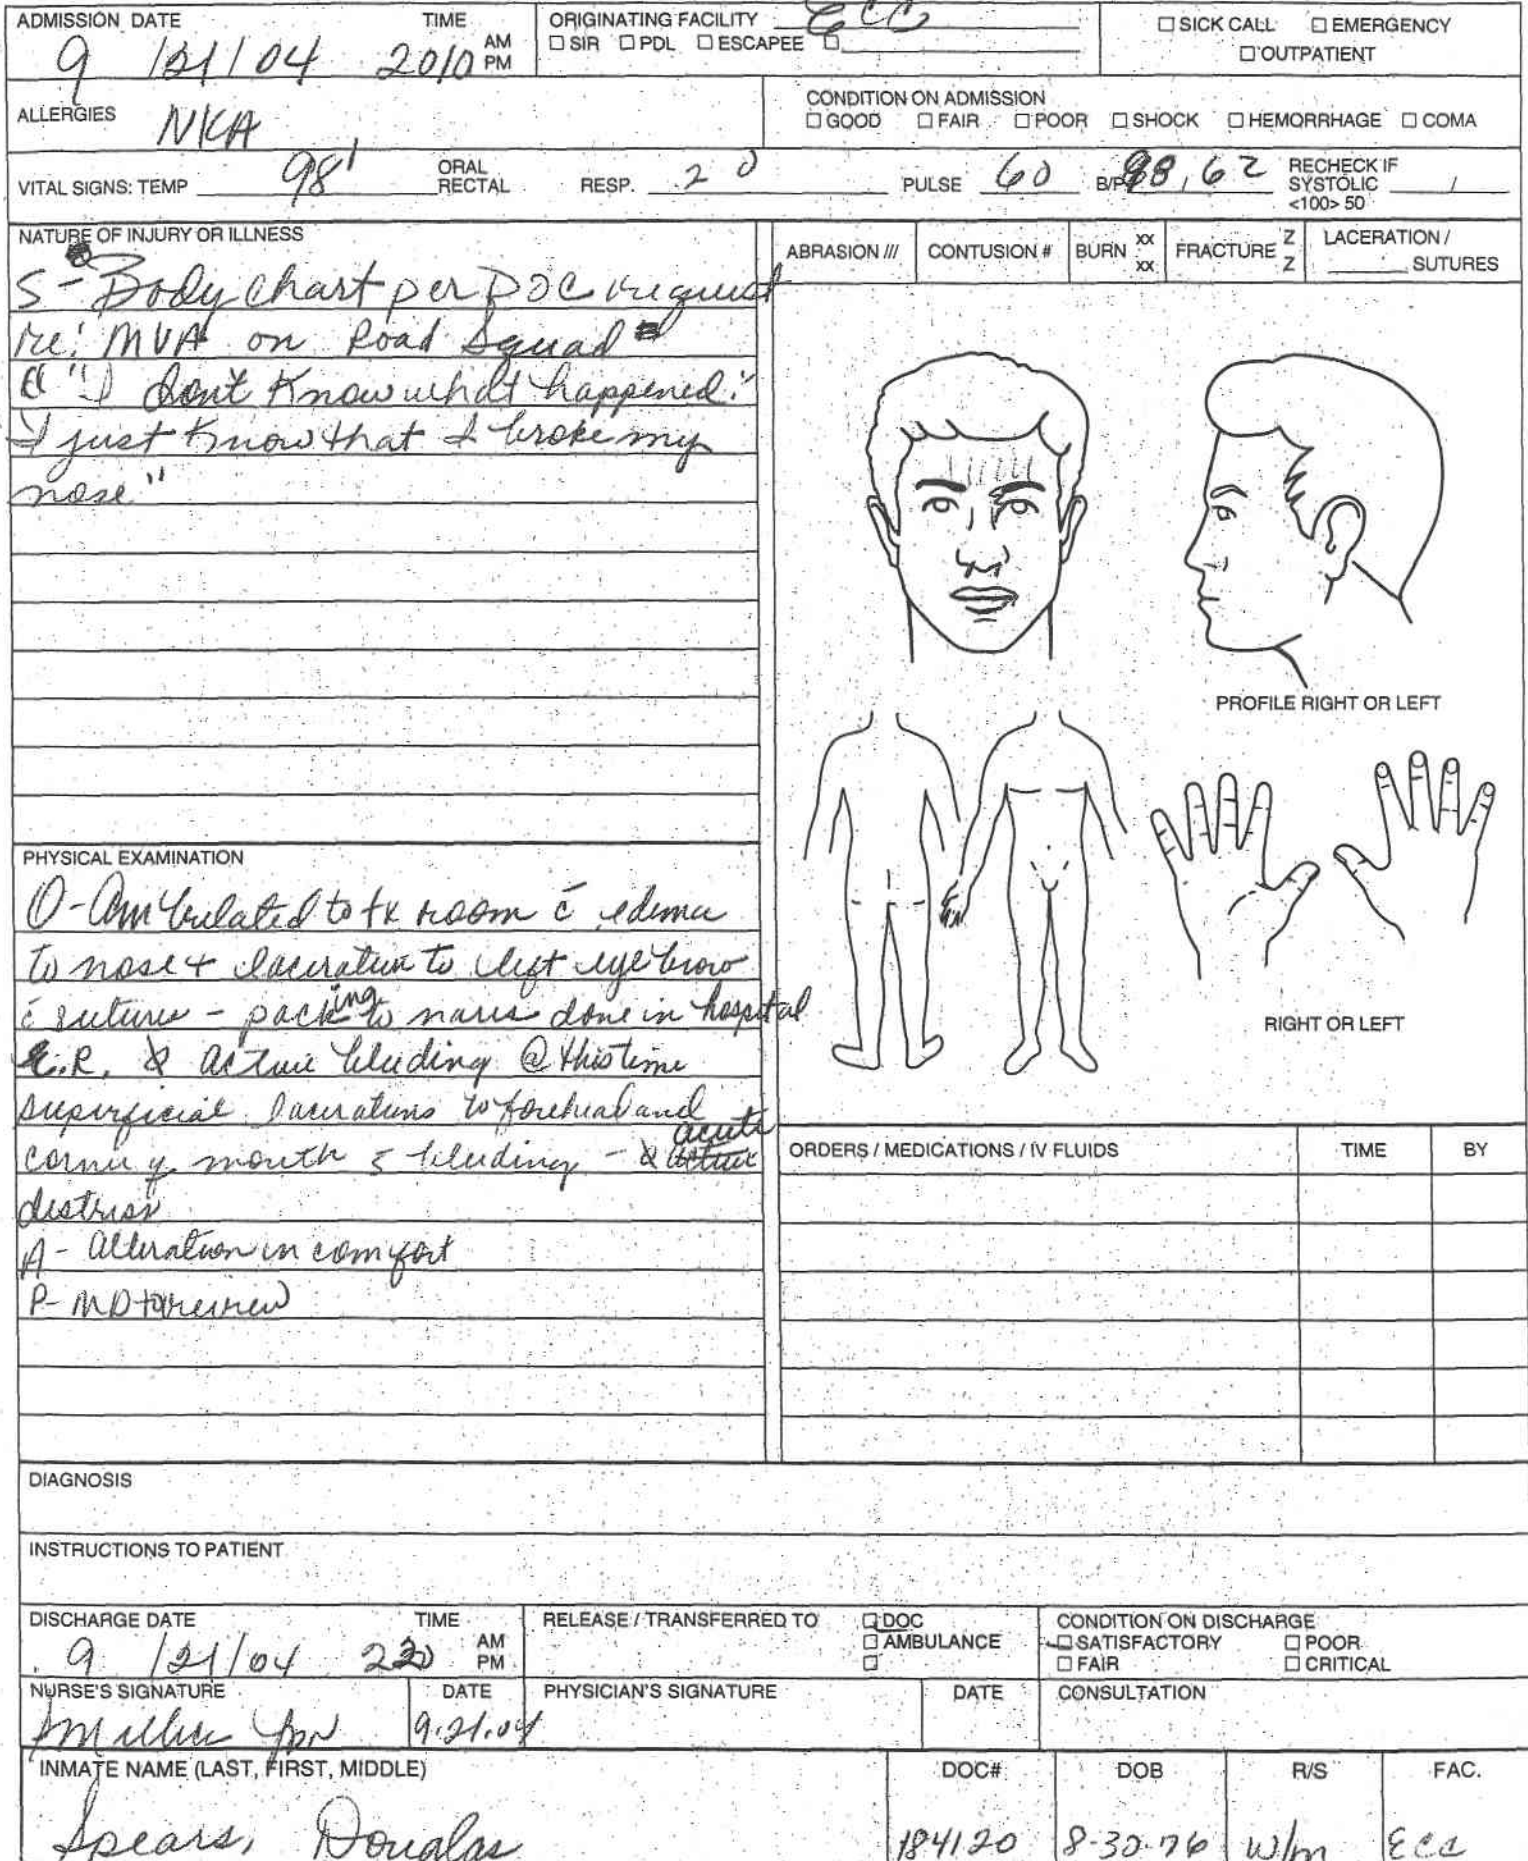 ADMISSION DATE TIME ORIGINATING FACILITY ECC
9 /21/04 2010 AM PM
□ SIR □ PDL □ ESCAPEE □
□ SICK CALL □ EMERGENCY
□ OUTPATIENT
ALLERGIES NKA
CONDITION ON ADMISSION
□ GOOD □ FAIR □ POOR □ SHOCK □ HEMORRHAGE □ COMA
VITAL SIGNS: TEMP 98' ORAL RECTAL RESP. 20 PULSE 60 B/P 98, 62 RECHECK IF SYSTOLIC / <100> 50
NATURE OF INJURY OR ILLNESS
S - Body chart per DOC request
re: MVA on Road Squad
"I don't Know what happened."
I just Know that I broke my
nose"
ABRASION /// CONTUSION # BURN xx xx FRACTURE Z Z LACERATION / SUTURES
PROFILE RIGHT OR LEFT
RIGHT OR LEFT
PHYSICAL EXAMINATION
O - Ambulated to tx room c̄ edema
to nose + laceration to left eyebrow
c̄ suture - packing to nares done in hospital
E.R. Ø active bleeding @ this time
superficial lacerations to forehead and
corner of mouth s̄ bleeding - Ø acute
distress
A - Alteration in comfort
P - MD to review
ORDERS / MEDICATIONS / IV FLUIDS TIME BY
DIAGNOSIS
INSTRUCTIONS TO PATIENT
DISCHARGE DATE TIME RELEASE / TRANSFERRED TO □ DOC
9 /21/04 AM PM
□ AMBULANCE
□
CONDITION ON DISCHARGE
□ SATISFACTORY □ POOR
□ FAIR □ CRITICAL
NURSE'S SIGNATURE DATE PHYSICIAN'S SIGNATURE DATE CONSULTATION
9.21.04
INMATE NAME (LAST, FIRST, MIDDLE) DOC# DOB R/S FAC.
Spears, Douglas 184120 8-30-76 W/m ECC